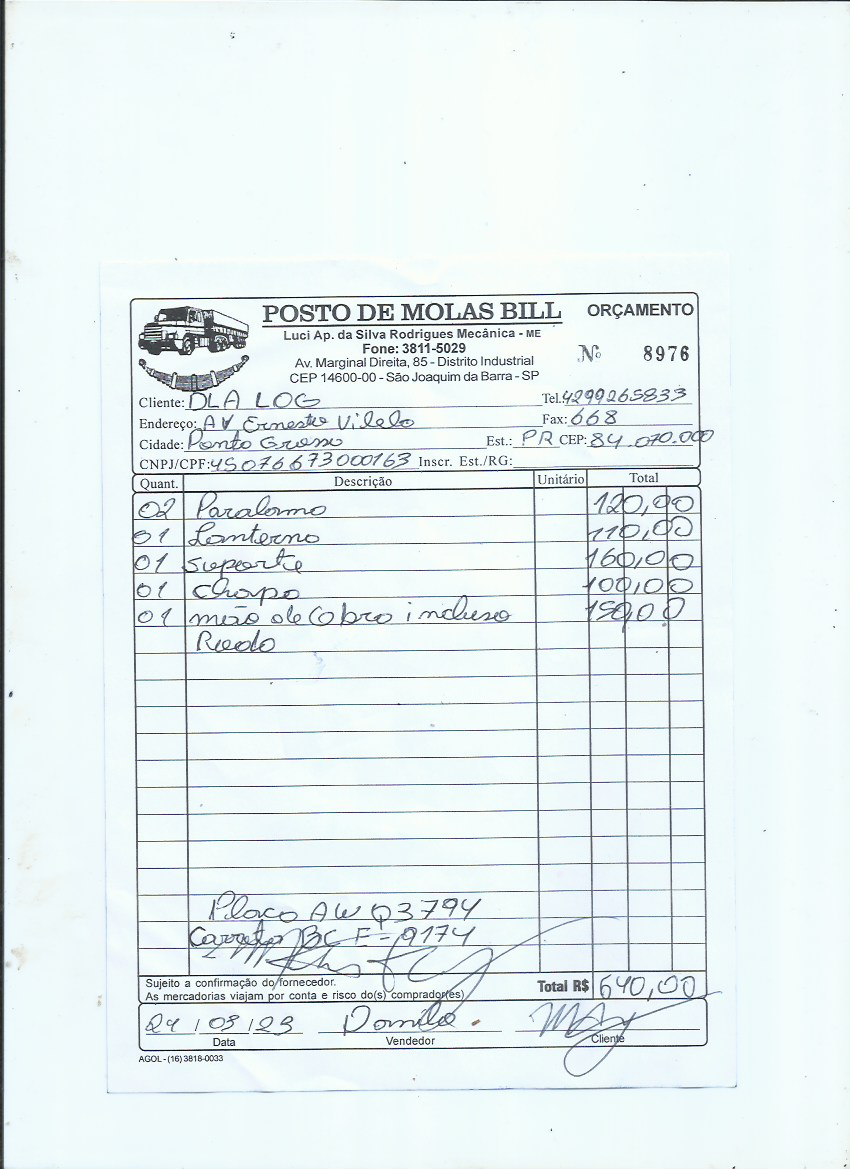 POSTO DE MOLAS BILL ORÇAMENTO
Luci Ap. da Silva Rodrigues Mecânica - ME
Fone: 3811-5029
Av. Marginal Direita, 85 - Distrito Industrial
CEP 14600-00 - São Joaquim da Barra - SP
Nº 8976
Cliente: DLA LOG Tel. 4299265833
Endereço: AV Ernesto Vilela Fax: 668
Cidade: Ponta Grossa Est.: PR CEP: 84.070.000
CNPJ/CPF: 45076673000163 Inscr. Est./RG:
Quant. Descrição Unitário Total
02 Paralama 120,00
01 Lanterna 110,00
01 suporte 160,00
01 chapa 100,00
01 mão de obra incluso 150,00
Placa AWQ3794
Carreta BCF-9174
Sujeito a confirmação do fornecedor.
As mercadorias viajam por conta e risco do(s) comprador(es)
Total R$ 640,00
24/03/23
Data Vendedor Cliente
AGOL - (16) 3818-0033